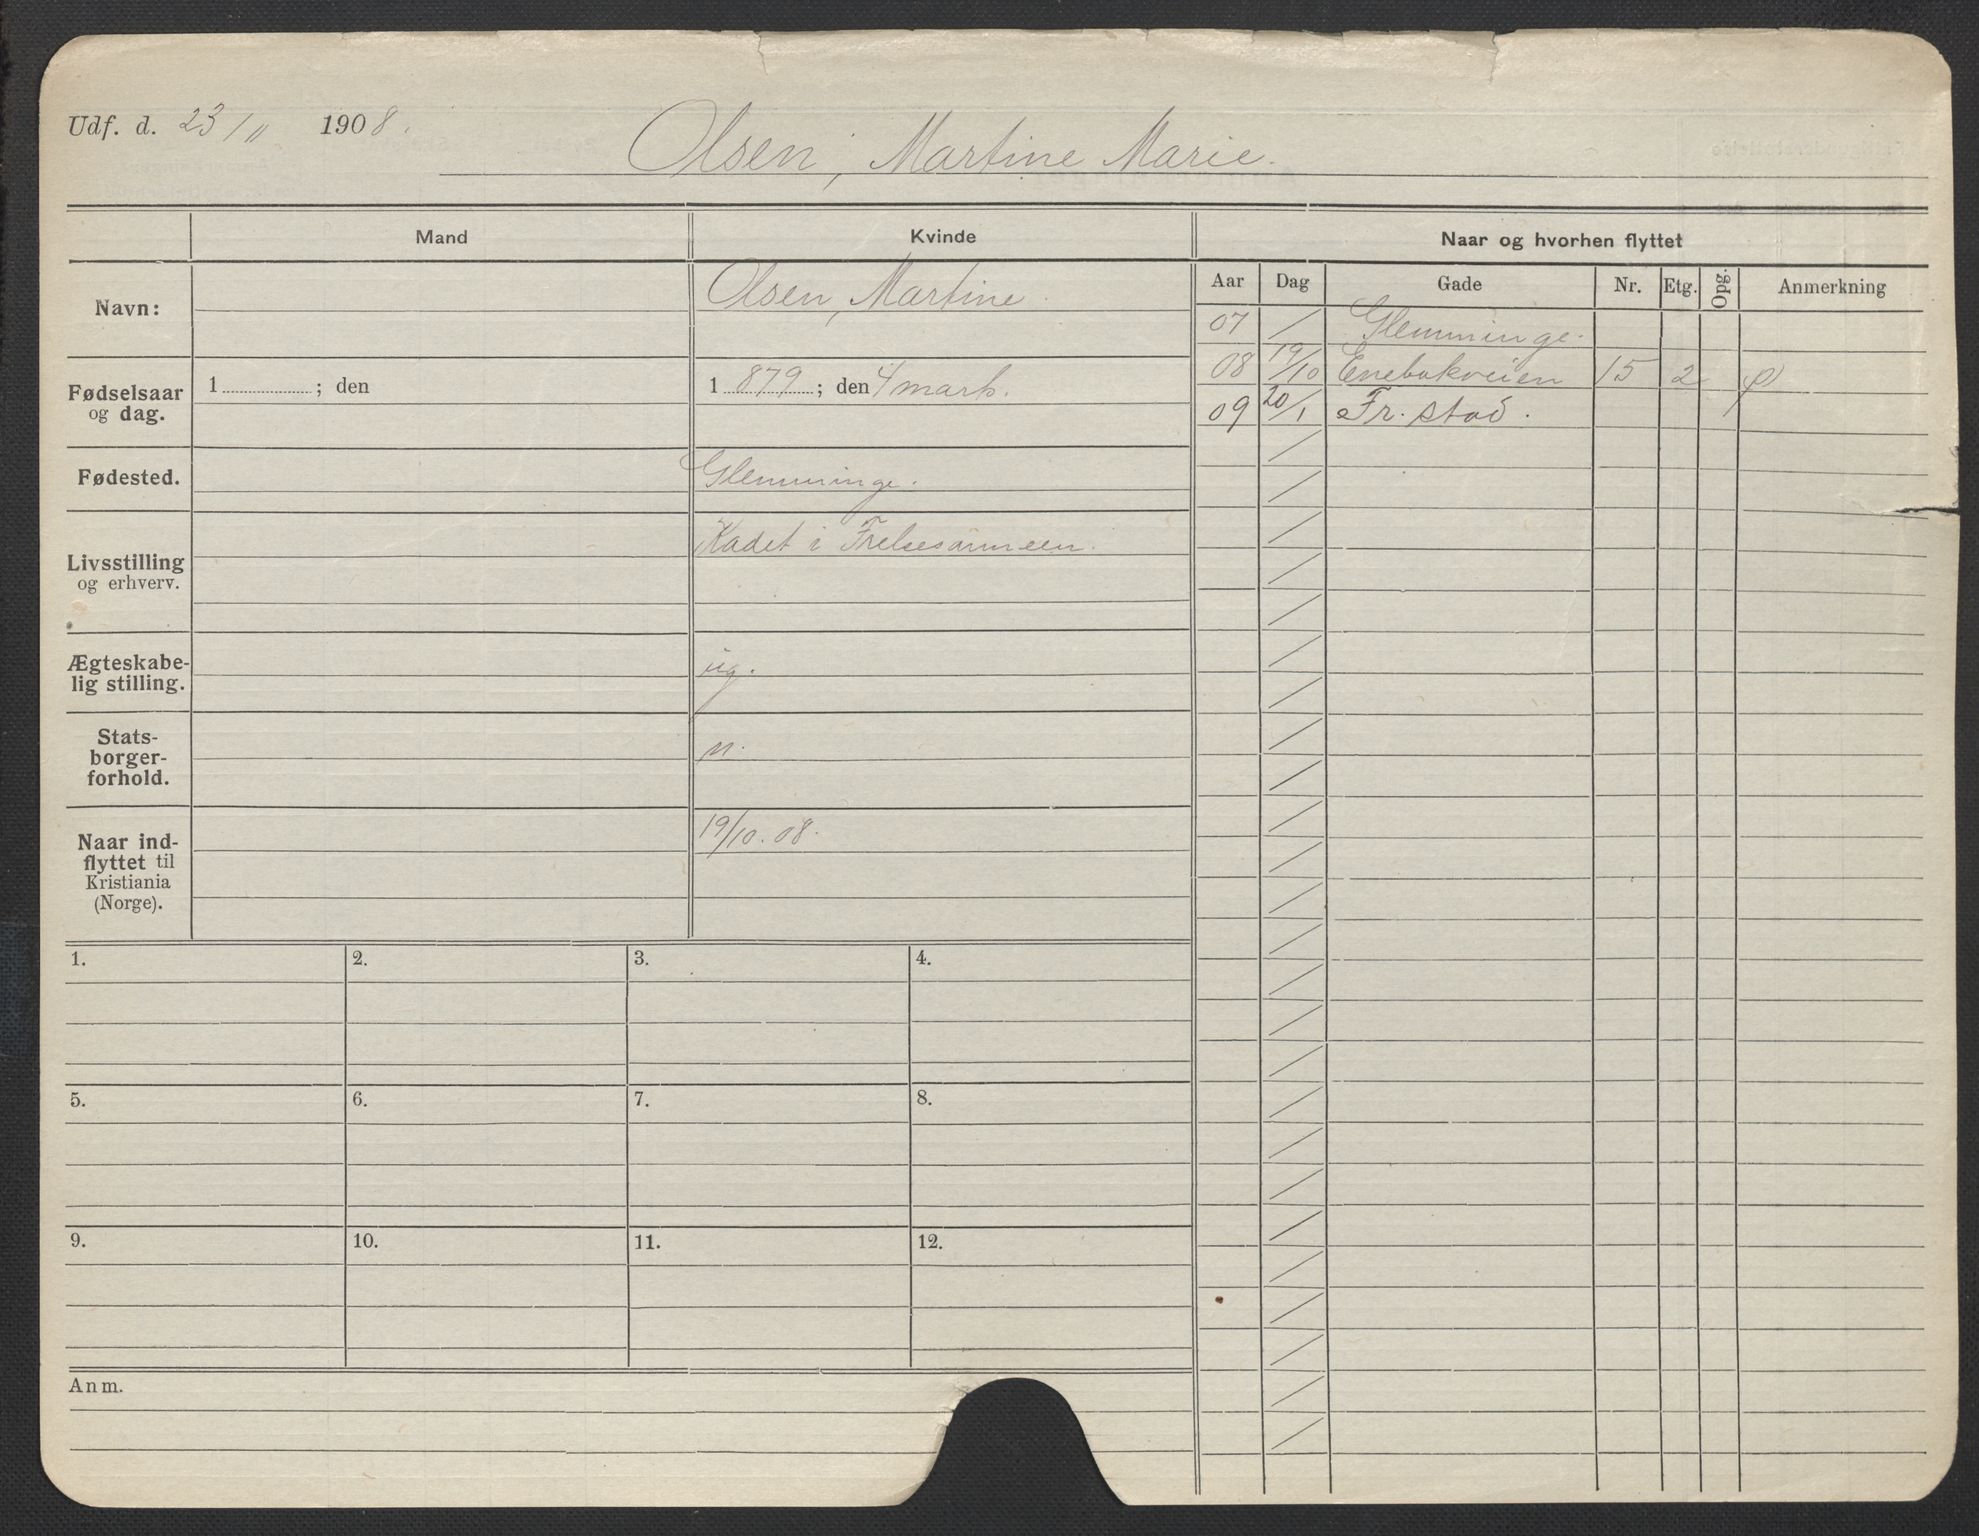 Udf. d. 23/11 1908.
Olsen, Martine Marie.
Mand
Kvinde
Naar og hvorhen flyttet
Aar Dag Gade Nr. Etg. Opg. Anmerkning
Navn:
Olsen, Martine.
07 Glemminge.
08 19/10 Enebakveien 15 2
09 20/1 Fr.stad.
Fødselsaar
og dag.
1 ; den
1 879 ; den 4 marts.
Fødested.
Glemminge.
Livsstilling
og erhverv.
Kadet i Frelsesarmeen.
Ægteskabe-
lig stilling.
ug.
Stats-
borger-
forhold.
n.
Naar ind-
flyttet til
Kristiania
(Norge).
19/10. 08.
1. 2. 3. 4.
5. 6. 7. 8.
9. 10. 11. 12.
Anm.